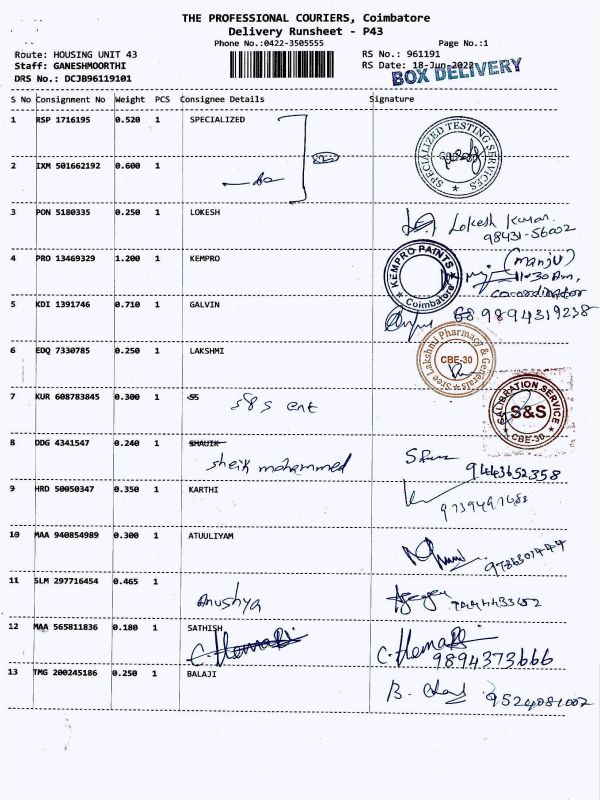 THE PROFESSIONAL COURIERS, Coimbatore
Delivery Runsheet - P43
Phone No.:0422-3505555 Page No.:1
Route: HOUSING UNIT 43 RS No.: 961191
Staff: GANESHMOORTHI RS Date: 18-Jun-2022
BOX DELIVERY
DRS No.: DCJB96119101
S No Consignment No Weight PCS Consignee Details Signature
1 RSP 1716195 0.520 1 SPECIALIZED
SPECIALIZED TESTING SERVICES
2 IXM 501662192 0.600 1
3 PON 5180335 0.250 1 LOKESH Lokesh Kumar
98431-56002
4 PRO 13469329 1.200 1 KEMPRO KEMPRO PAINTS Coimbatore (Manju)
11-30 Am,
co-ordinator
5 KDI 1391746 0.710 1 GALVIN 9894319238
6 EDQ 7330785 0.250 1 LAKSHMI Sree Lakshmi Pharmacy & Generals CBE-30
7 KUR 608783845 0.300 1 SS S&S ent
CALIBRATION SERVICE S&S CBE-30
8 DDG 4341547 0.240 1 SHAUIK
Sheik mohammed 9443652358
9 HRD 50050347 0.350 1 KARTHI
10 MAA 940854989 0.300 1 ATUULIYAM
11 SLM 297716454 0.465 1
Anushya
12 MAA 565811836 0.180 1 SATHISH
C. Hema C. Hema
9894373666
13 TMG 200245186 0.250 1 BALAJI
B. 9524081002